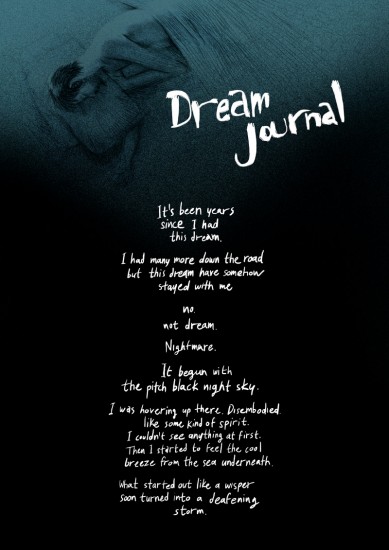 Dream
Journal
It's been years
since I had
this dream.
I had many more down the road
but this dream have somehow
stayed with me
no.
not dream.
Nightmare.
It begun with
the pitch black night sky.
I was hovering up there. Disembodied.
like some kind of spirit.
I couldn't see anything at first.
Then I started to feel the cool
breeze from the sea underneath.
What started out like a wisper
soon turned into a deafening
storm.